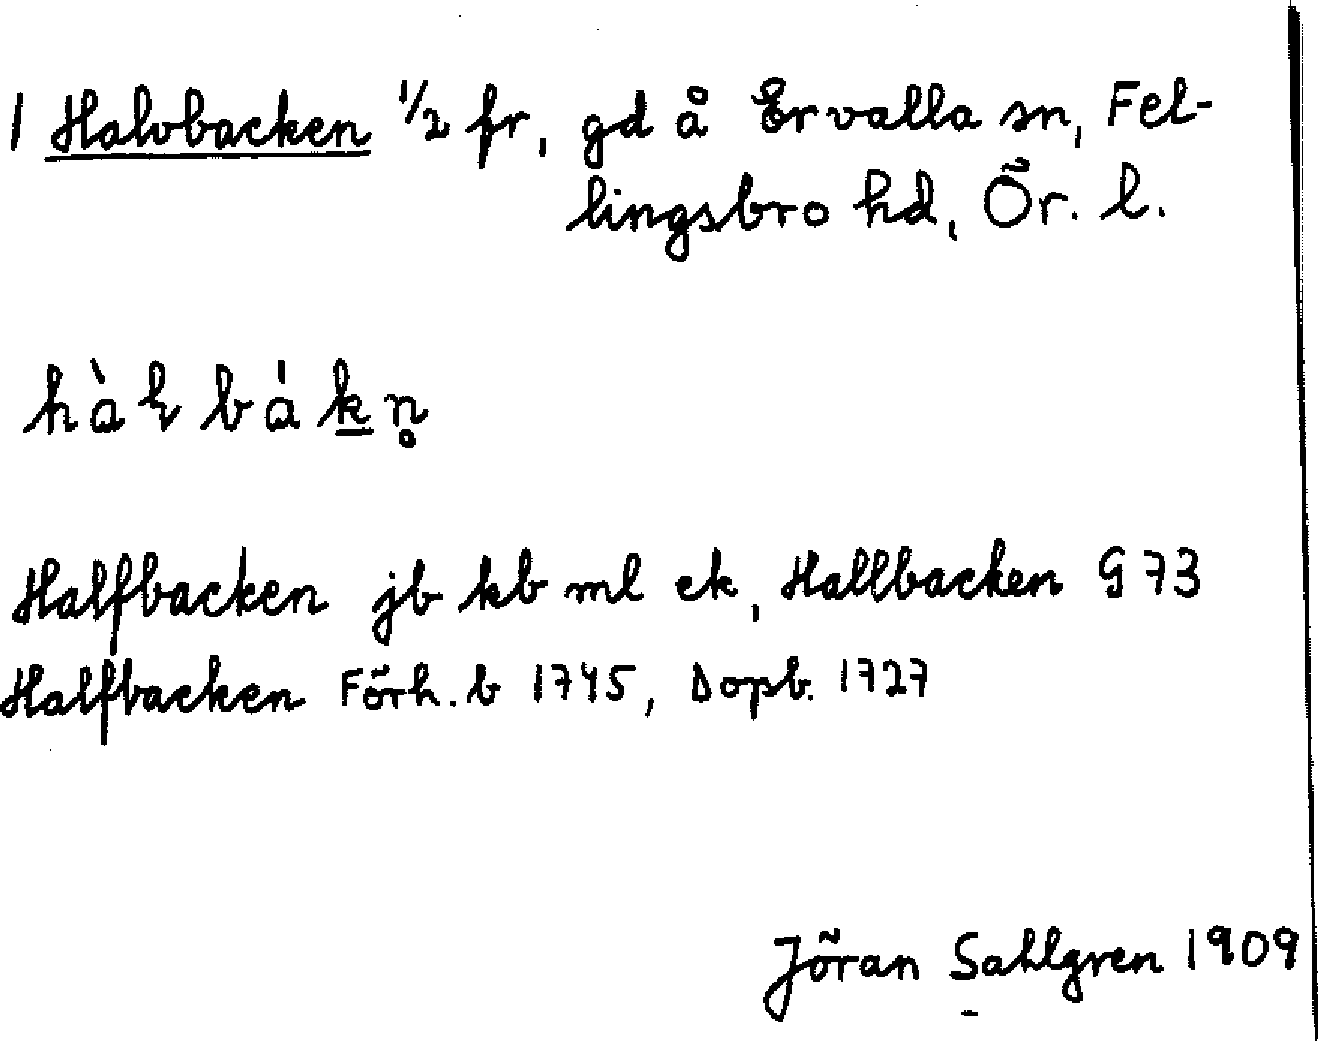 1 Halvbacken 1/2 fr, gd å Ervalla sn, Fel-
lingsbro hd, Ör. l.
hàɫbákn̥
Halfbacken jb kb ml ek, Hallbacken G 73
Halfbacken Förh. b 1745, Dopb. 1727
Jöran Sahlgren 1909